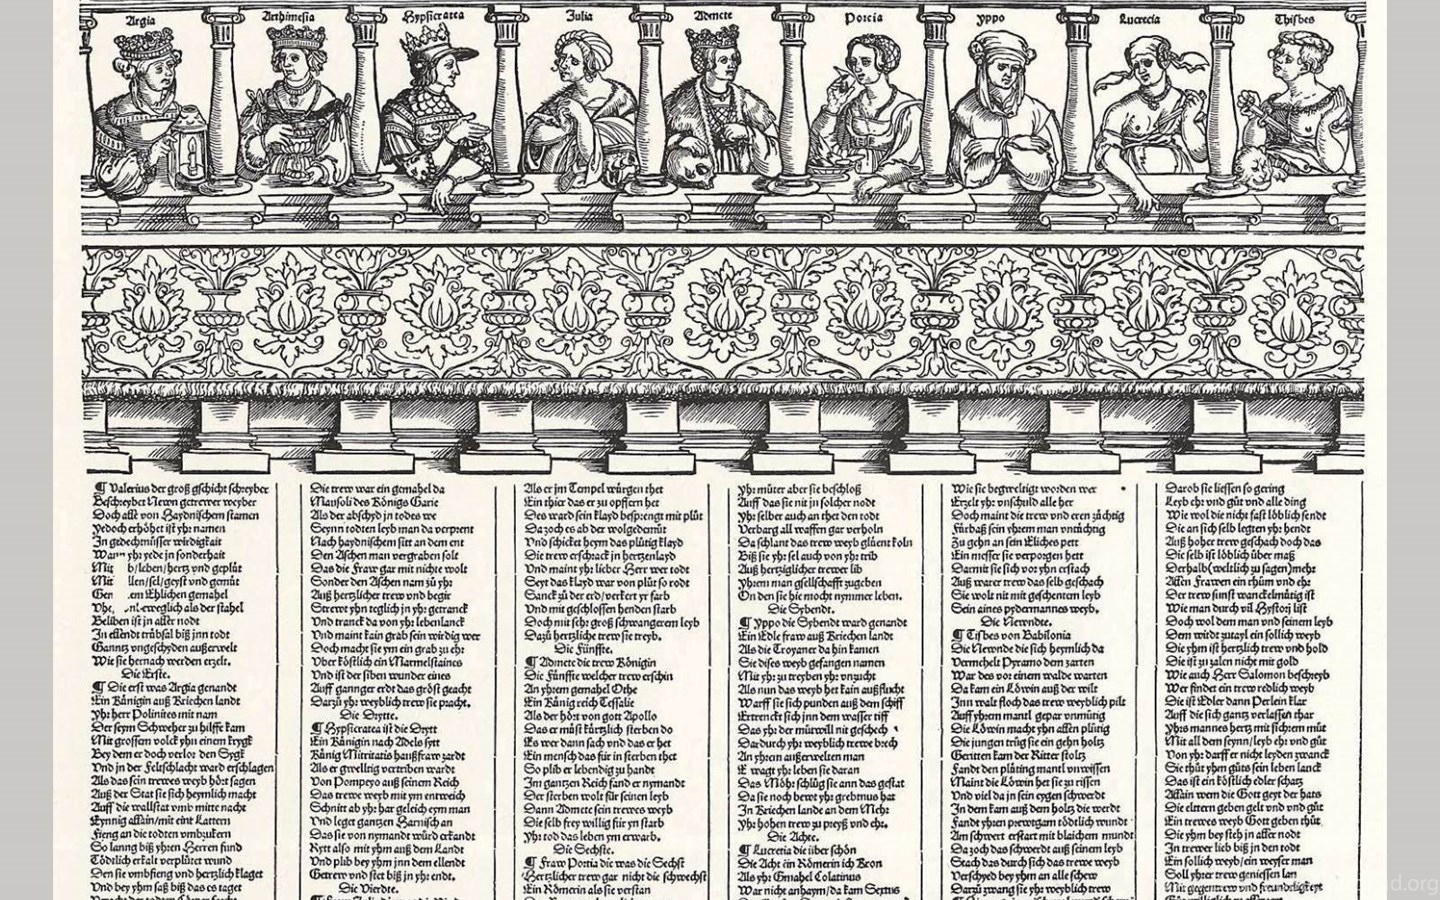 Argia
Arthimesia
Hypsicratea
Julia
Admete
Porcia
yppo
Lucrecia
Thisbes
¶ Valerius der groß gschicht schreyber
Beschreybet Newn getrewer weyber
Doch alle von Haydnischem stamen
yedoch erhöhet ist yhr namen
In gedechtnüsser wirdigkait
yhr yede jn sonderhait
Mit leyb/leben/hertz vnd geplüt
Mit /sel/geyst vnd gemüt
Ehlichen gemahel
als der stahel
Beliben ist jn aller nodt
In ellendt trübsal biß jnn todt
Ganntz vngeschyden außerwelt
Wie sie hernach werden erzelt.
Die Erste.
¶ Die erst was Argia genandt
Ein Künigin auß Kriechen landt
yhr herr Polinites mit nam
Der seym Schweher zu hilffe kam
Mit grossem volck yhn einem krygk
Bey dem er doch verlor den Sygk
Vnd jn der Felschlacht ward erschlagen
Als das sein trewes weyb hört sagen
Auß der Stat sie sich heymlich macht
Auff die wallstat vmb mitte nacht
Eynnig allain/mit eint Lattern
Fieng an die todten vmbzukern
So lanng biß yhren Herren fund
Tödtlich erkalt verplütet wund
Den sie vmbfieng vnd hertzlich klaget
Vnd bey yhm saß biß das es taget
Die trew war ein gemahel da
Mausoli des Königs Garie
Als der abschyd jn todes we
Seynn todten leyb man da verprent
Nach haydnischem sitt an dem ent
Den Aschen man vergraben solt
Das die Fraw gar mit nichte wolt
Sonder den Aschen nam zü yhr
Auß hertzlicher trew vnd begir
Strewt yhn teglich jn yhr getranck
Vnd tranck da von yhr lebenlanck
Vnd maint kain grab sein wirdig wer
Doch macht sie ym ein grab zu ehr
Vber köstlich ein Marmelstaines
Vnd ist der siben wunder eines
Auff gannger erdt das gröst geacht
Darzü yhr weyblich trew sie pracht.
Die Drytte.
¶ Hypsicratea ist die Drytt
Ein Künigin nach Adels sytt
Künig Mitritatis haußfraw zardt
Als er gwelltig vertriben wardt
Von Pompeyo auß seinem Reich
Das trewe weyb mit ym entweich
Schnitt ab yhr har geleich eym man
Vnd leget gantzen Harnisch an
Das sie von nymandt würd erkandt
Rytt also mit yhm auß dem Landt
Vnd plib bey yhm jnn dem ellendt
Getrew vnd stet biß jn yhr endt.
Die Vierdte.
Als er jm Tempel würgen thet
Ein thier das er zu opffern het
Des ward sein klayd besprengt mit plüt
Da zoch es ab der wolgedemüt
Vnd schicket heym das plütig klayd
Die trew erschrack jn hertzenlayd
Vnd maint yhr lieber Herr wer todt
Seyt das klayd was von plüt so rodt
Sanck zü der erd/verkert yr farb
Vnd mit geschlossen henden starb
Doch mit sehr groß schwangerem leyb
Dazü hertzliche trew sie treyb.
Die Fünffte.
¶ Admete die trew Königin
Die Fünffte welcher trew erschin
An yhrem gemahel Othe
Ein König reich Tessalie
Als der hört von gott Apollo
Das er müst kürtzlich sterben do
Es wer dann sach vnd das er het
Ein mensch das für in sterben thet
So plib er lebendig zu handt
Im gantzen Reich fand er nymandt
Der sterben wolt für seinen leyb
Dann Admete sein trewes weyb
Die selb frey willig für yn starb
yhr tod das leben ym erwarb.
Die Sechste.
¶ Fraw Portia die was die Sechst
Hertzlicher trew gar nicht die schwechst
Ein Römerin als sie verstan
yhr müter aber sie beschloß
Auff das sie nit jn solcher nodt
yhr selber auch an thet den todt
Verbarg all waffen gar verholn
Da schlant das trew weyb glüent koln
Biß sie yhr sel auch von yhr trib
Auß hertziglicher trewer lib
yhrem man gsellschafft zugeben
On den sie hie mocht nymmer leben.
Die Sybendt.
¶ yppo die Sybendt ward genandt
Ein Edle fraw auß Kriechen landt
Als die Troyaner da hin kamen
Sie dises weyb gefangen namen
Mit yhr zu treyben yhr vnzucht
Als nun das weyb het kain außflucht
Warff sie sich punden auß dem schiff
Ertrenckt sich jnn dem wasser tiff
Das yhr der mütwill mit geschech
Dardurch yhr weyblich trewe brech
An yhrem außerwelten man
E wagt yhr leben sie daran
Das Möhr schlüg sie ann das gestat
Da sie noch bewt yhr grebtnus hat
In Kriechen lande an dem Mehr
yhr hohen trew zu preyß vnd ehr.
Die Achte.
¶ Lucretia die über schön
Die Acht ein Römerin jch kron
Als yhr Gmahel Colatinus
War nicht anhaym/da kam Sextus
Wie sie begweltigt worden wer
Erzelt yhr vnschuld alle her
Doch maint die trew vnd eren züchtig
Fürbaß sein yhrem man vntüchtig
Zu gehn an sein Eliches pett
Ein messer sie verporgen hett
Darmit sie sich vor yhn erstach
Auß warer trew das selb geschach
Sie wolt nit mit geschentem leyb
Sein aines pydermannes weyb.
Die Newndte.
¶ Tisbes von Babilonia
Die Newnde die sich heymlich da
Vermehelt Pyramo dem zarten
War des vor einem walde warten
Da kam ein Löwin auß der wilt
Inn walt floch das trew weyblich pilt
Auff yhrem mantl gepar vnmütig
Die Löwin macht yhn allen plütig
Die jungen trüg sie gen holtz
Geritten kam der Ritter stoltz
Fandt den plüting mantl vnwissen
Maint die Löwin het sie zu rissen
Vnd viel da jn sein eygen schwerdt
In dem kam auß dem holtz die werdt
Fandt yhren prewtgam tödtlich wundt
Am schwert erstart mit blaichem mundt
Da zoch das schwerdt auß seinem leyb
Stach das durch sich das trewe weyb
Verschyed bey yhm an alle schew
Darzü zwang sie yhr weyblich trew
Darob sie liessen so gering
Leyb ehr vnd güt vnd alle ding
Wie wol die nicht fast löblich sendt
Die an sich selb legten yhr hendt
Auß hoher trew geschach doch das
Die selb ist löblich über maß
Derhalb(weltlich zu sagen)mehr
Allen Frawen ein rhüm vnd ehr
Der trew sunst wanckelmütig ist
Wie man durch vil Hystorj list
Doch wol dem man vnd seinem leyb
Dem wirdt zutayl ein sollich weyb
Die yhm ist hertzlich trew vnd hold
Die ist zu zalen nicht mit gold
Wie auch Herr Salomon beschreyt
Wer findet ein trew redlich weyb
Die ist Edler dann Perlein klar
Auff die sich gantz verlassen thar
yhrs mannes hertz mit sichrem müt
Mit all dem seynn/leyb ehr vnd güt
Von yhr darff er nicht leyden zwanck
Sie thüt yhm güts sein leben lanck
Das ist ein köstlich edler schatz
Allain wem die Gott geyt der hats
Die eltern geben gelt vnd vnd güt
Ein trewes weyb Gott geben thüt
Die yhm bey steh jn aller nodt
In trewer lieb biß jn den todt
Ein sollich weyb/ein weyser man
Soll yhrer trew geniessen lan
Mit gegentrew vnd freundtligkeyt